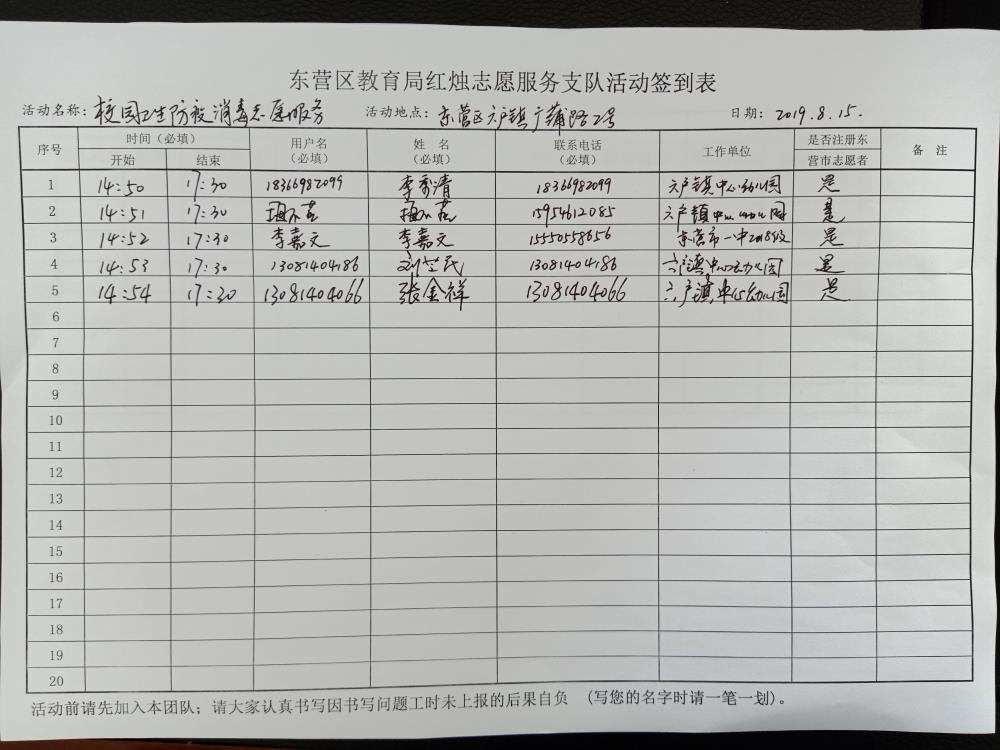 东营区教育局红烛志愿服务支队活动签到表
活动名称：校园卫生防疫消毒志愿服务 活动地点：东营区六户镇广蒲路2号 日期：2019.8.15.
序号 时间（必填） 用户名（必填） 姓名（必填） 联系电话（必填） 工作单位 是否注册东营市志愿者 备注
开始 结束
1 14:50 17:30 18366982099 李秀清 18366982099 六户镇中心幼儿园 是
2 14:51 17:30 15954612085 六户镇中心幼儿园 是
3 14:52 17:30 李嘉文 李嘉文 15550558656 东营市一中2018级 是
4 14:53 17:30 13081404186 刘兰民 13081404186 六户镇中心幼儿园 是
5 14:54 17:30 13081404066 张金祥 13081404066 六户镇中心幼儿园 是
6
7
8
9
10
11
12
13
14
15
16
17
18
19
20
活动前请先加入本团队；请大家认真书写因书写问题工时未上报的后果自负 （写您的名字时请一笔一划）。